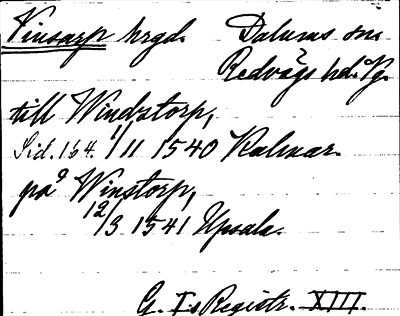 Vinsarp hrgd. Dalums sn.
Redvägs hd. Vg.
till Windztorp,
Sid. 164. 1/11 1540 Kalmar.
på Winstorp,
12/3 1541 Upsala.
G. I:s Registr. XIII.